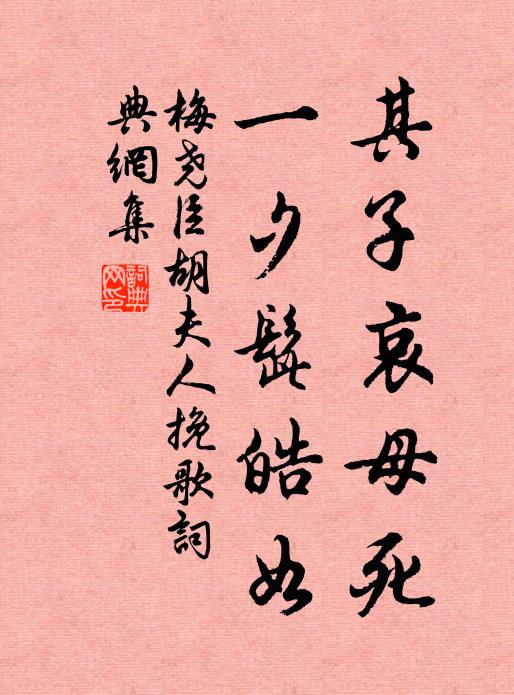 其子哀母死
一夕髭皓如
梅尧臣胡夫人挽歌詞
典網集
詞典网印